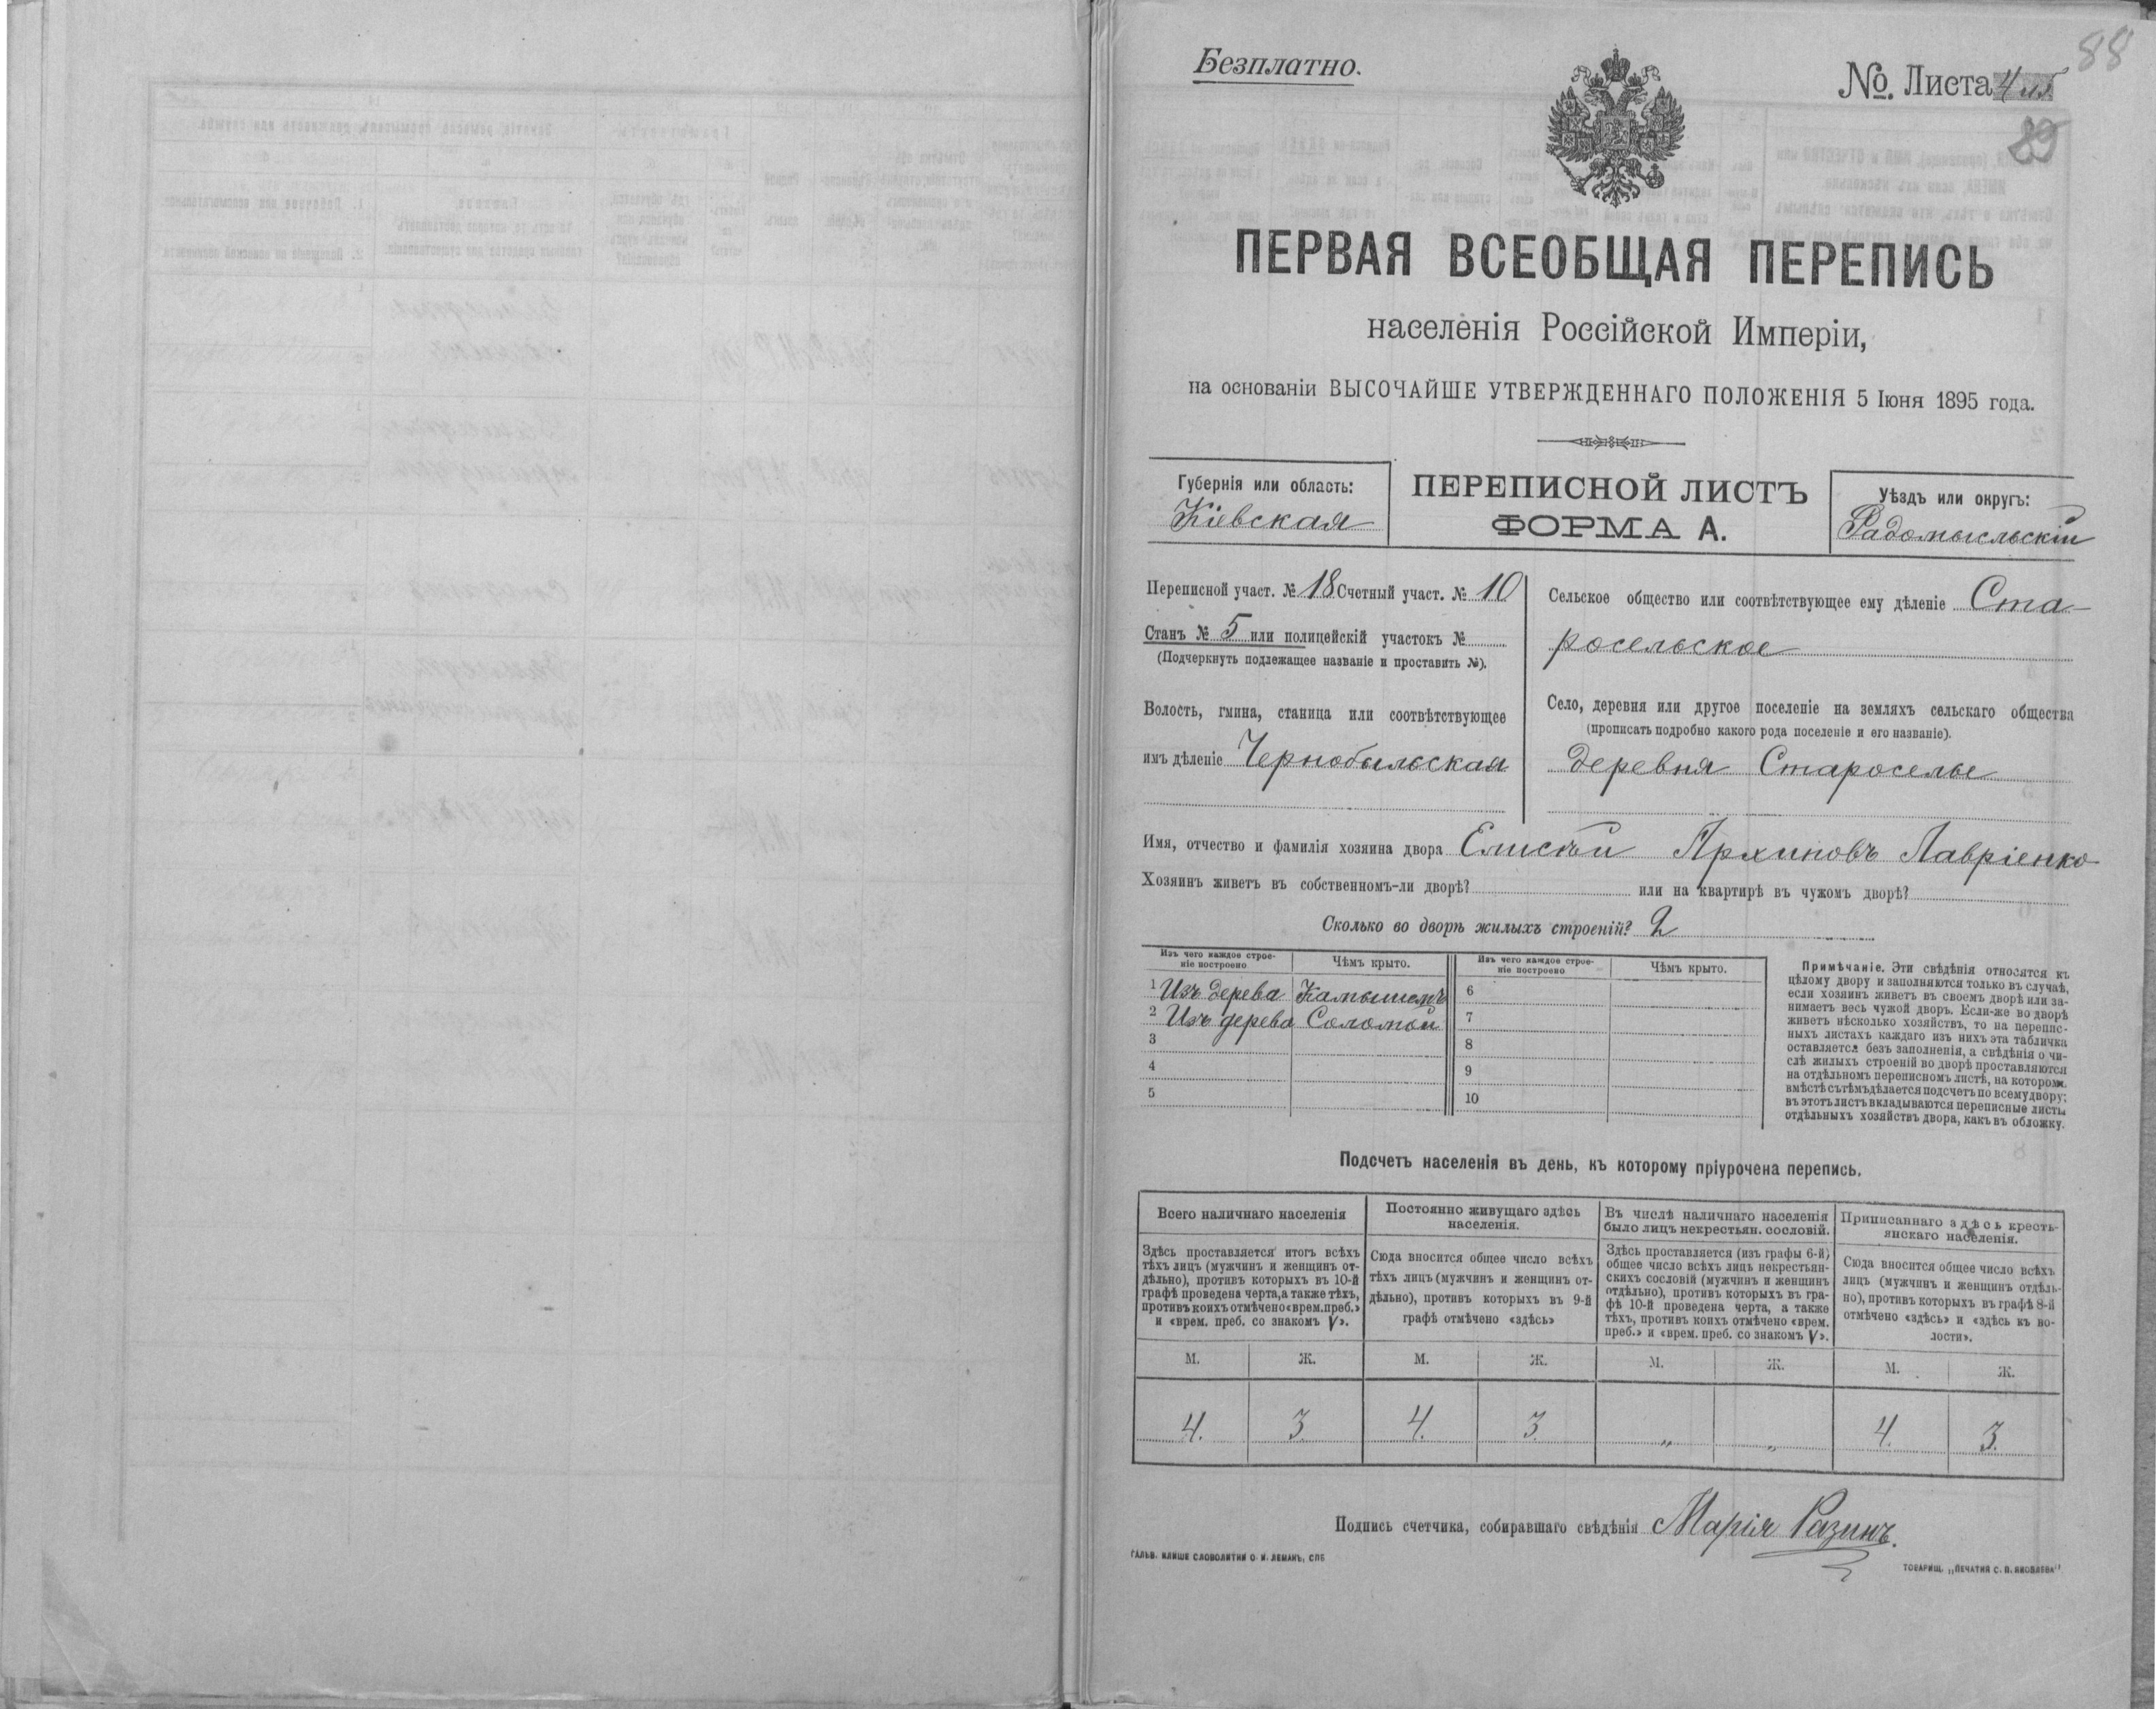 Безплатно.
88
№. Листа
89
ПЕРВАЯ ВСЕОБЩАЯ ПЕРЕПИСЬ
населенія Россійской Имперіи,
на основаніи ВЫСОЧАЙШЕ УТВЕРЖДЕННАГО ПОЛОЖЕНІЯ 5 Іюня 1895 года.
Губернія или область:
Кіевская
ПЕРЕПИСНОЙ ЛИСТЪ
ФОРМА А.
Уѣздъ или округъ:
Радомысльскій
Переписной участ. № 18 Счетный участ. № 10
Станъ № 5 или полицейскій участокъ №
(Подчеркнуть подлежащее названіе и проставить №).
Волость, гмина, станица или соотвѣтствующее
имъ дѣленіе Чернобыльская
Сельское общество или соотвѣтствующее ему дѣленіе Ста-
росельское
Село, деревня или другое поселеніе на земляхъ сельскаго общества
(прописать подробно какого рода поселеніе и его названіе).
деревня Староселье
Имя, отчество и фамилія хозяина двора Елисѣй Архиповъ Лавріенко
Хозяинъ живетъ въ собственномъ-ли дворѣ? или на квартирѣ въ чужомъ дворѣ?
Сколько во дворѣ жилыхъ строеній? 2
Изъ чего каждое строе-
ніе построено
Чѣмъ крыто.
Изъ чего каждое строе-
ніе построено
Чѣмъ крыто.
1 Изъ дерева Камышемъ
2 Изъ дерева Соломой
3
4
5
6
7
8
9
10
Примѣчаніе. Эти свѣдѣнія относятся къ
цѣлому двору и заполняются только въ случаѣ,
если хозяинъ живетъ въ своемъ дворѣ или за-
нимаетъ весь чужой дворъ. Если-же во дворѣ
живетъ нѣсколько хозяйствъ, то на перепис-
ныхъ листахъ каждаго изъ нихъ эта табличка
оставляется безъ заполненія, а свѣдѣнія о чи-
слѣ жилыхъ строеній во дворѣ проставляются
на отдѣльномъ переписномъ листѣ, на которомъ
вмѣстѣ съ тѣмъ дѣлается подсчетъ по всему двору;
въ этотъ листъ вкладываются переписные листы
отдѣльныхъ хозяйствъ двора, какъ въ обложку.
Подсчетъ населенія въ день, къ которому пріурочена перепись.
Всего наличнаго населенія
Здѣсь проставляется итогъ всѣхъ
тѣхъ лицъ (мужчинъ и женщинъ от-
дѣльно), противъ которыхъ въ 10-й
графѣ проведена черта, а также тѣхъ,
противъ коихъ отмѣчено «врем. преб.»
и «врем. преб. со знакомъ V».
Постоянно живущаго здѣсь
населенія.
Сюда вносится общее число всѣхъ
тѣхъ лицъ (мужчинъ и женщинъ от-
дѣльно), противъ которыхъ въ 9-й
графѣ отмѣчено «здѣсь»
Въ числѣ наличнаго населенія
было лицъ некрестьян. сословій.
Здѣсь проставляется (изъ графы 6-й)
общее число всѣхъ лицъ некрестьян-
скихъ сословій (мужчинъ и женщинъ
отдѣльно), противъ которыхъ въ гра-
фѣ 10-й проведена черта, а также
тѣхъ, противъ коихъ отмѣчено «врем.
преб.» и «врем. преб. со знакомъ V».
Приписаннаго здѣсь кресть-
янскаго населенія.
Сюда вносится общее число всѣхъ
лицъ (мужчинъ и женщинъ отдѣль-
но), противъ которыхъ въ графѣ 8-й
отмѣчено «здѣсь» и «здѣсь къ во-
лости».
М. Ж. М. Ж. М. Ж. М. Ж.
4. 3. 4. 3. „ „ 4. 3.
Подпись счетчика, собиравшаго свѣдѣнія Марія Разинъ.
ГАЛЬВ. КЛИШЕ СЛОВОЛИТНИ О. И. ЛЕМАНЪ, СПБ
ТОВАРИЩ. „ПЕЧАТНЯ С. П. ЯКОВЛЕВА"